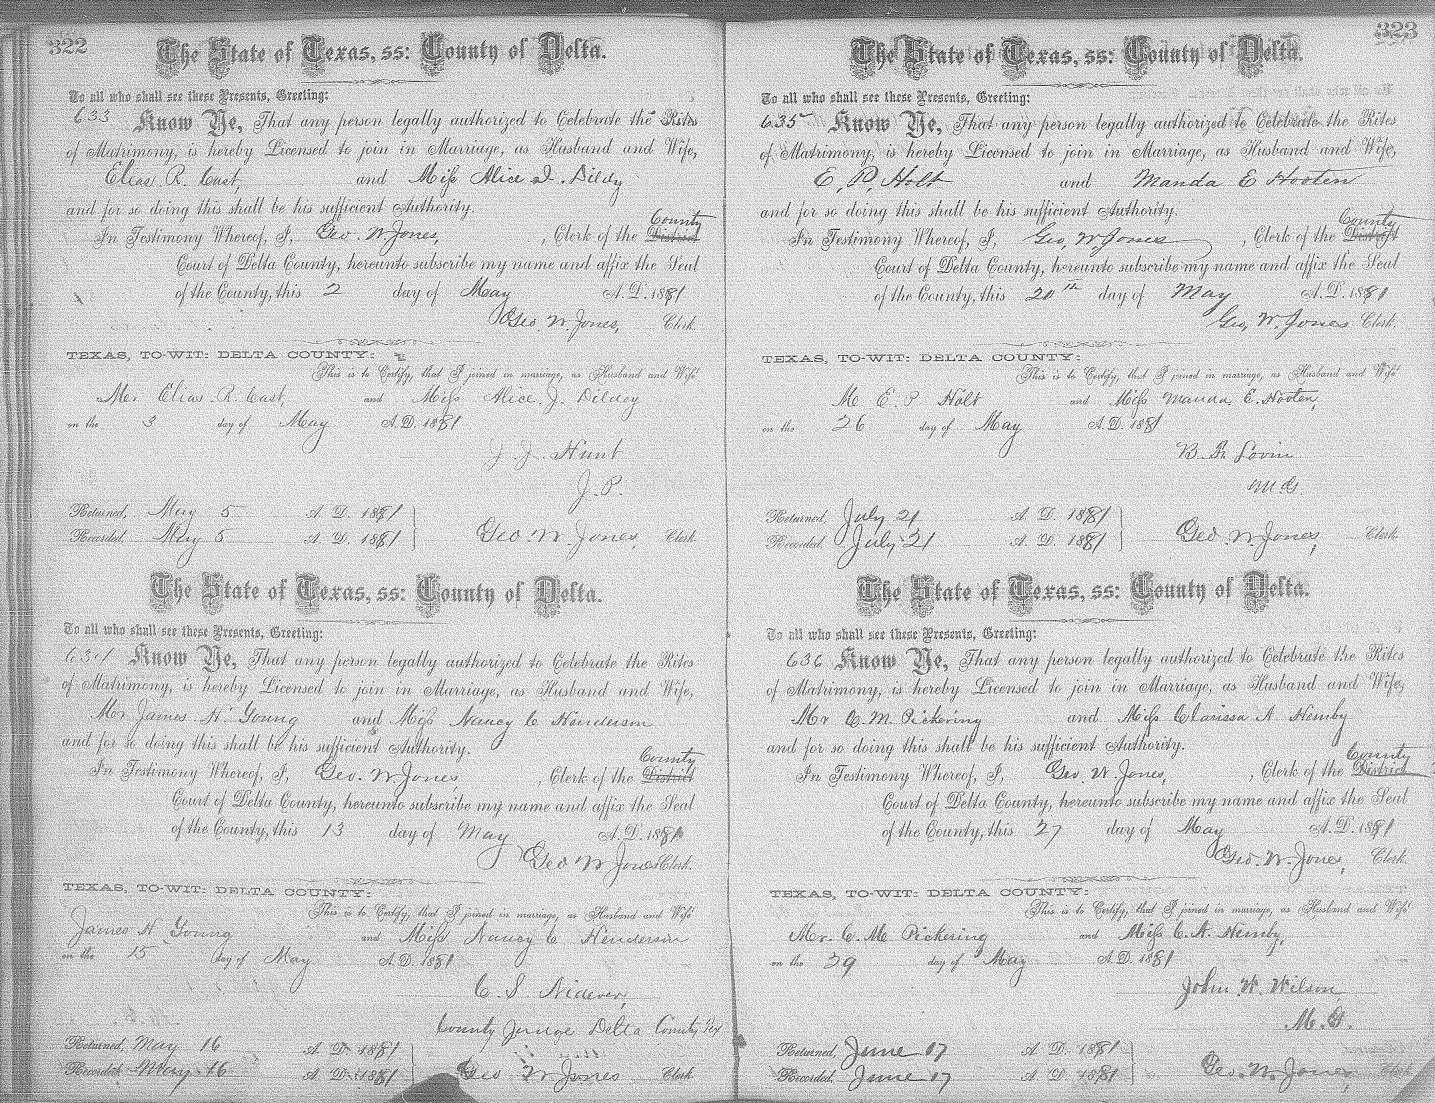 322
The State of Texas, ss: County of Delta.
To all who shall see these Presents, Greeting:
633 Know Ye, That any person legally authorized to Celebrate the Rites
of Matrimony, is hereby Licensed to join in Marriage, as Husband and Wife,
Elias. R. Cast, and Miss Alice J. Dildy
and for so doing this shall be his sufficient Authority.
County
In Testimony Whereof, I, Geo. W. Jones, , Clerk of the District
Court of Delta County, hereunto subscribe my name and affix the Seal
of the County, this 2 day of May A. D. 1881
Geo W. Jones, Clerk.
TEXAS, TO-WIT: DELTA COUNTY:
This is to Certify, that I joined in marriage, as Husband and Wife
Mr. Elias. R. Cast, and Miss Alice. J. Dildey
on the 3 day of May A. D. 1881
J. J. Hunt
J. P.
Returned, May 5 A. D. 1881
Recorded. May 5 A. D. 1881 Geo. W. Jones, Clerk
The State of Texas, ss: County of Delta.
To all who shall see these Presents, Greeting:
634 Know Ye, That any person legally authorized to Celebrate the Rites
of Matrimony, is hereby Licensed to join in Marriage, as Husband and Wife,
Mr James H. Young and Miss Nancy C Henderson
and for so doing this shall be his sufficient Authority.
County
In Testimony Whereof, I, Geo. W. Jones, , Clerk of the District
Court of Delta County, hereunto subscribe my name and affix the Seal
of the County, this 13 day of May A. D. 1881
Geo W Jones Clerk.
TEXAS, TO-WIT: DELTA COUNTY:
This is to Certify, that I joined in marriage, as Husband and Wife
James H Young and Miss Nancy C Henderson
on the 15 day of May A. D. 1881
C. S. Nidever,
County Junge Delta County Tex
Returned, May 16 A. D. 1881
Recorded. May 16 A. D. 1881 Geo W Jones Clerk
323
The State of Texas, ss: County of Delta.
To all who shall see these Presents, Greeting:
635 Know Ye, That any person legally authorized to Celebrate the Rites
of Matrimony, is hereby Licensed to join in Marriage, as Husband and Wife,
E. P. Holt and Manda E Hooten
and for so doing this shall be his sufficient Authority.
County
In Testimony Whereof, I, Geo, W Jones , Clerk of the District
Court of Delta County, hereunto subscribe my name and affix the Seal
of the County, this 20th day of May A. D. 1881
Geo, W. Jones Clerk.
TEXAS, TO-WIT: DELTA COUNTY:
This is to Certify, that I joined in marriage, as Husband and Wife
M E. P Holt and Miss Manda E. Hooten,
on the 26 day of May A. D. 1881
B. A Lovin
M. G
Returned, July 21 A. D. 1881
Recorded. July 21 A. D. 1881 Geo. W Jones, Clerk
The State of Texas, ss: County of Delta.
To all who shall see these Presents, Greeting:
636 Know Ye, That any person legally authorized to Celebrate the Rites
of Matrimony, is hereby Licensed to join in Marriage, as Husband and Wife,
Mr C. M. Pickering and Miss Clarissa A Hemby
and for so doing this shall be his sufficient Authority.
County
In Testimony Whereof, I, Geo. W. Jones, , Clerk of the District
Court of Delta County, hereunto subscribe my name and affix the Seal
of the County, this 27 day of May A. D. 1881
Geo. W. Jones, Clerk.
TEXAS, TO-WIT: DELTA COUNTY:
This is to Certify, that I joined in marriage, as Husband and Wife
Mr. C. M. Pickering and Miss C. A. Hemby,
on the 29 day of May A. D. 1881
John. W. Wilson
M. G.
Returned, June 17 A. D. 1881
Recorded. June 17 A. D. 1881 Geo. W. Jones, Clerk